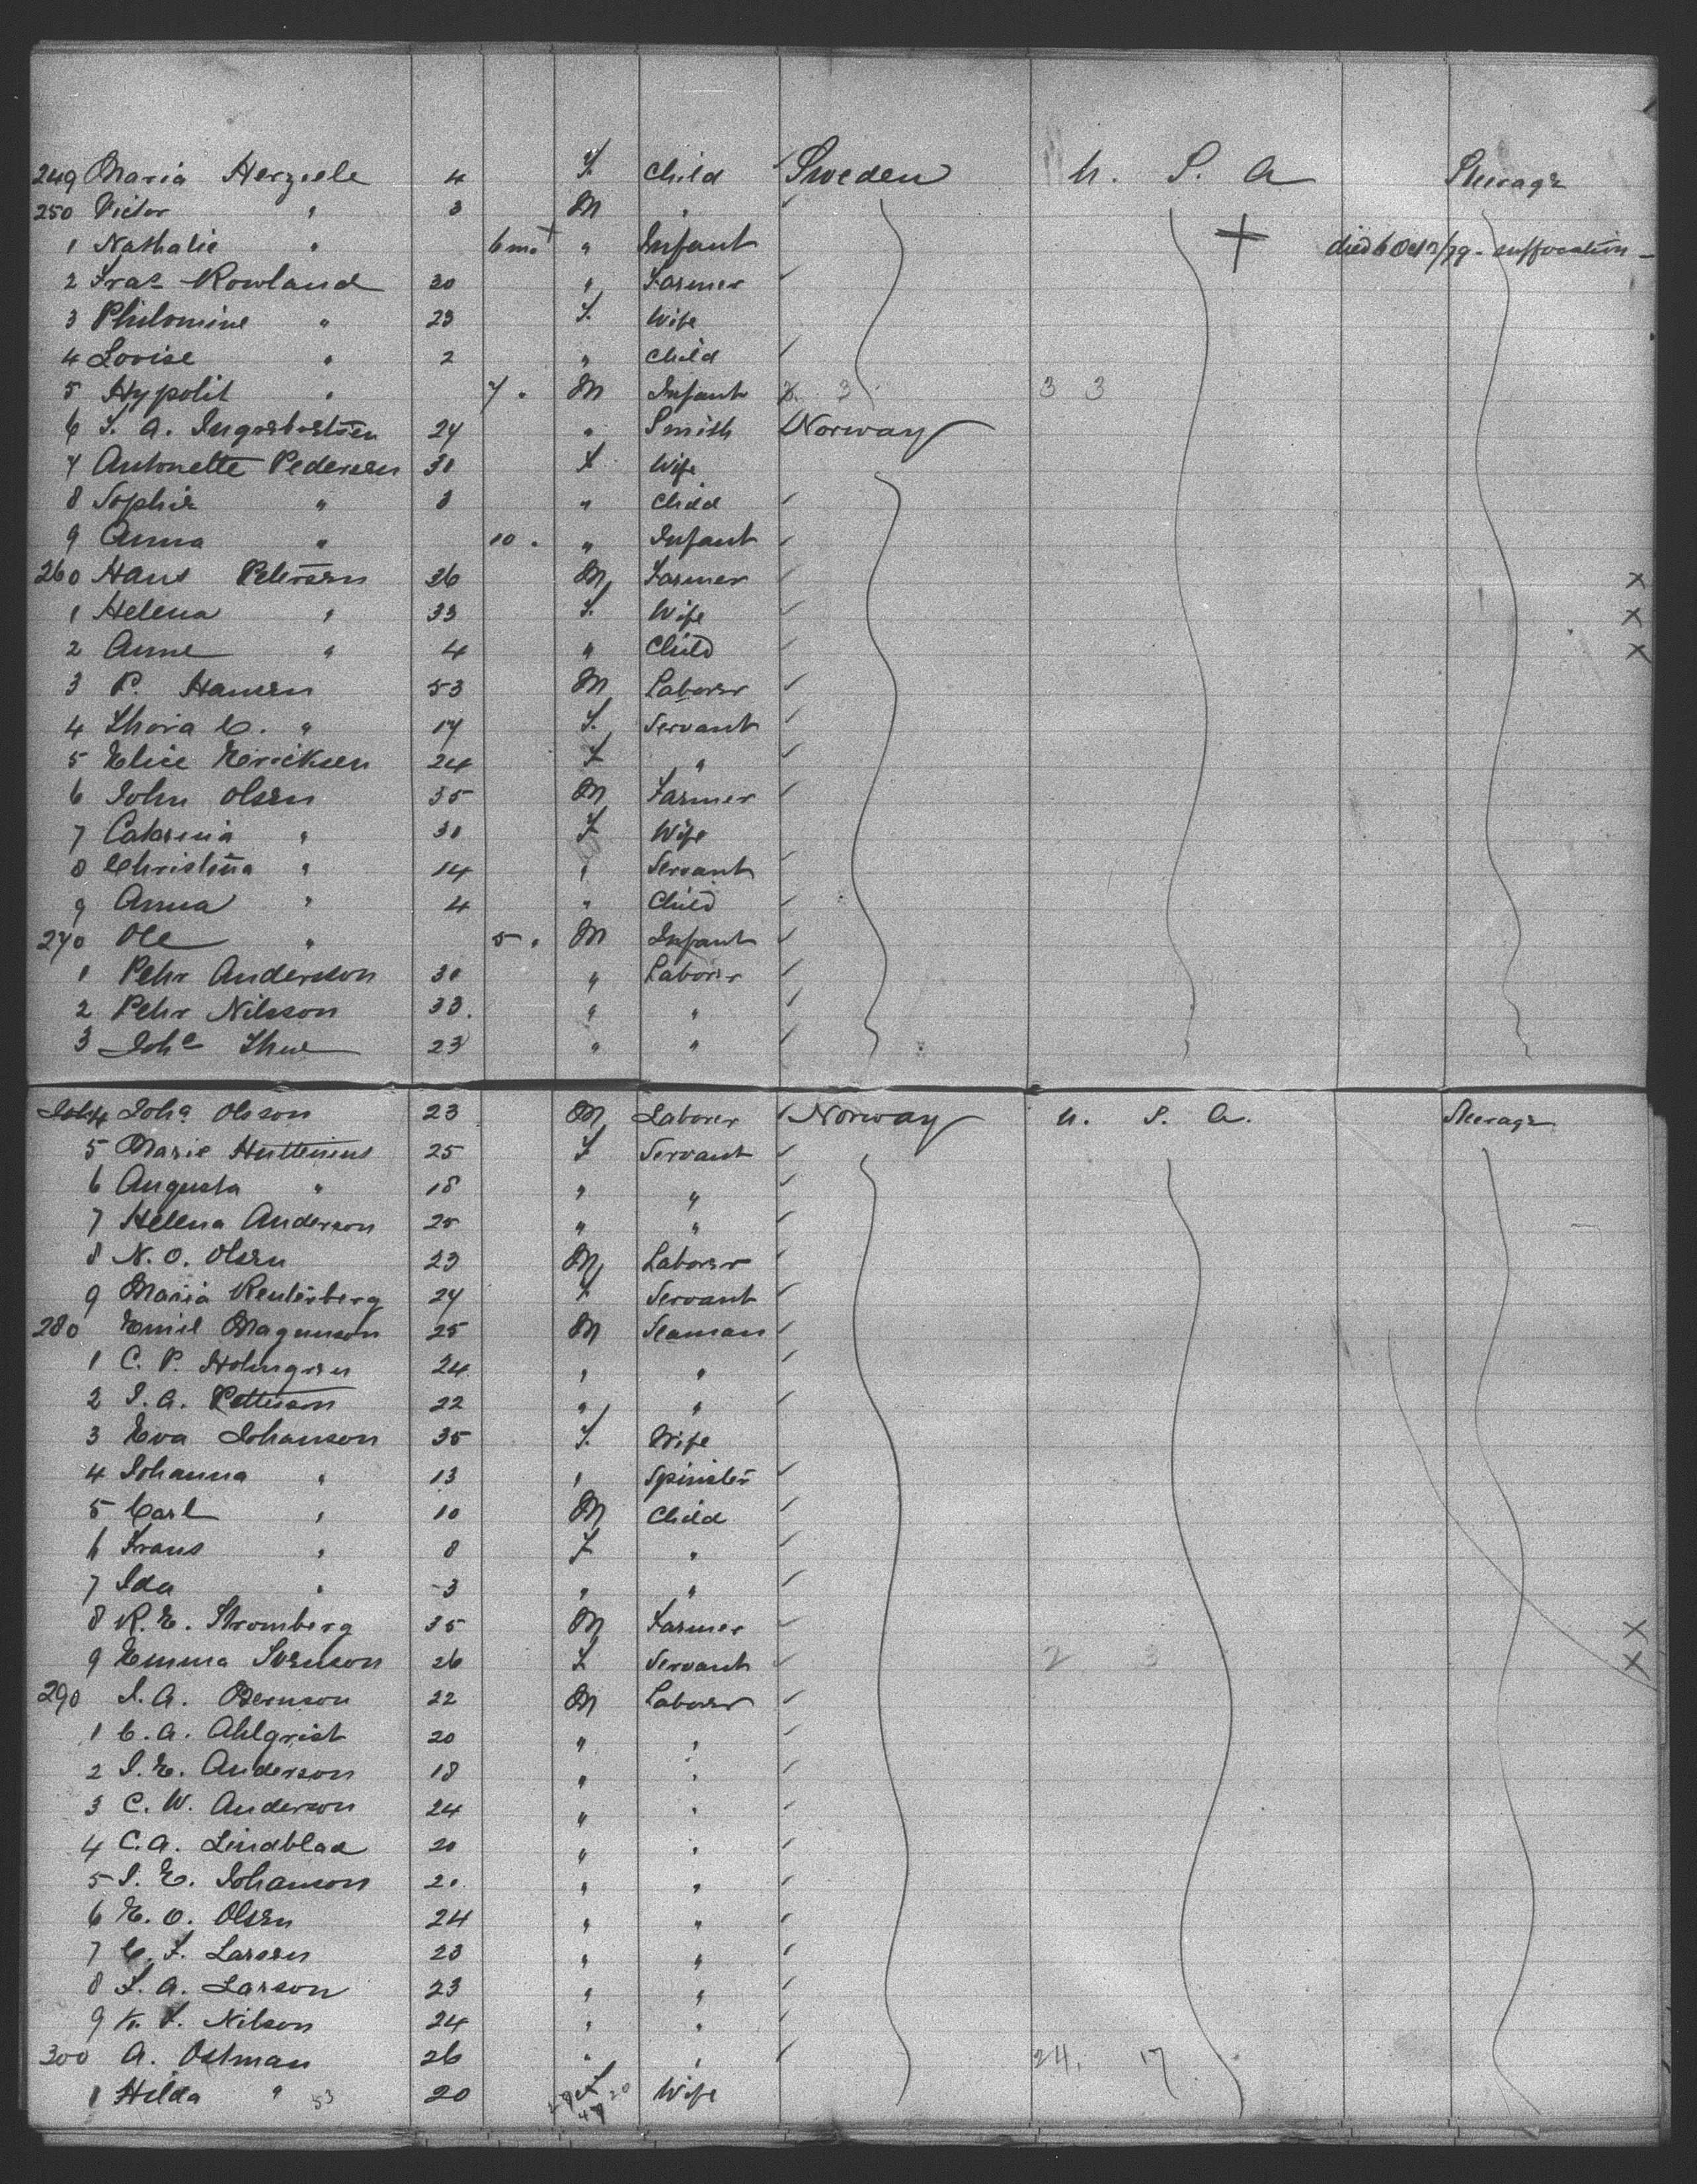 249 Maria Herziele 4 F. Child Sweden U. S. A Steerage
250 Victor " 3 M "
1 Nathalie " 6 mo " Infant died 6 Oct /79 - suffocation -
2 Fras Rowland 30 " Farmer
3 Philomine " 23 F. Wife
4 Lovise " 2 " Child
5 Hypolit " 7 " M Infant 3 3 3
6 24 " Smith Norway
7 Antonette Pedersen 31 F Wife
8 Sophie " 3 " Child
9 Anna " 10 " " Infant
260 Hans Petersen 36 M Farmer ×
1 Helena " 33 F. Wife ×
2 Anne " 4 " Child ×
3 P. Hansen 53 M Laborer
4 Thora C. " 17 F. Servant
5 Elise Ericksen 24 F "
6 John Olsen 35 M Farmer
7 Catrina " 31 F Wife
8 Christina " 14 " Servant
9 Anna " 4 " Child
270 Ole " 5 " M Infant
1 Pehr Anderson 31 " Laborer
2 Pehr Nilsson 33. " "
3 23 " "
4 Joha Olsson 23 M Laborer Norway U. S. A. Steerage
5 Marie Huttenius 25 F Servant
6 Augusta " 18 " "
7 Helena Anderson 25 " "
8 N. O. Olsen 23 M Laborer
9 Maria Reuterberg 24 F Servant
280 Emil Magnuson 25 M Seaman
1 C. P. Holmgren 24 " "
2 I. A. Petterson 22 " "
3 Eva Johanson 35 F. Wife
4 Johanna " 13 " Spinster
5 Carl " 10 M Child
6 Frans " 8 F "
7 Ida " 3 " "
8 R. E. Stromberg 35 M Farmer ×
9 Emma Svenson 26 F Servant 2 3 ×
290 I. A. Bernson 22 M Laborer
1 C. A. Ahlqvist 20 " "
2 I. E. Anderson 18 " "
3 C. W. Anderson 24 " "
4 C. A. Lindblad 20 " "
5 I. E. Johanson 21 " "
6 E. O. Olsen 24 " "
7 C. F. Larsen 23 " "
8 F. A. Larson 23 " "
9 K. F. Nilson 24 " "
300 A. Ostman 26 " " 24. 17
1 Hilda " 53 20 F Wife